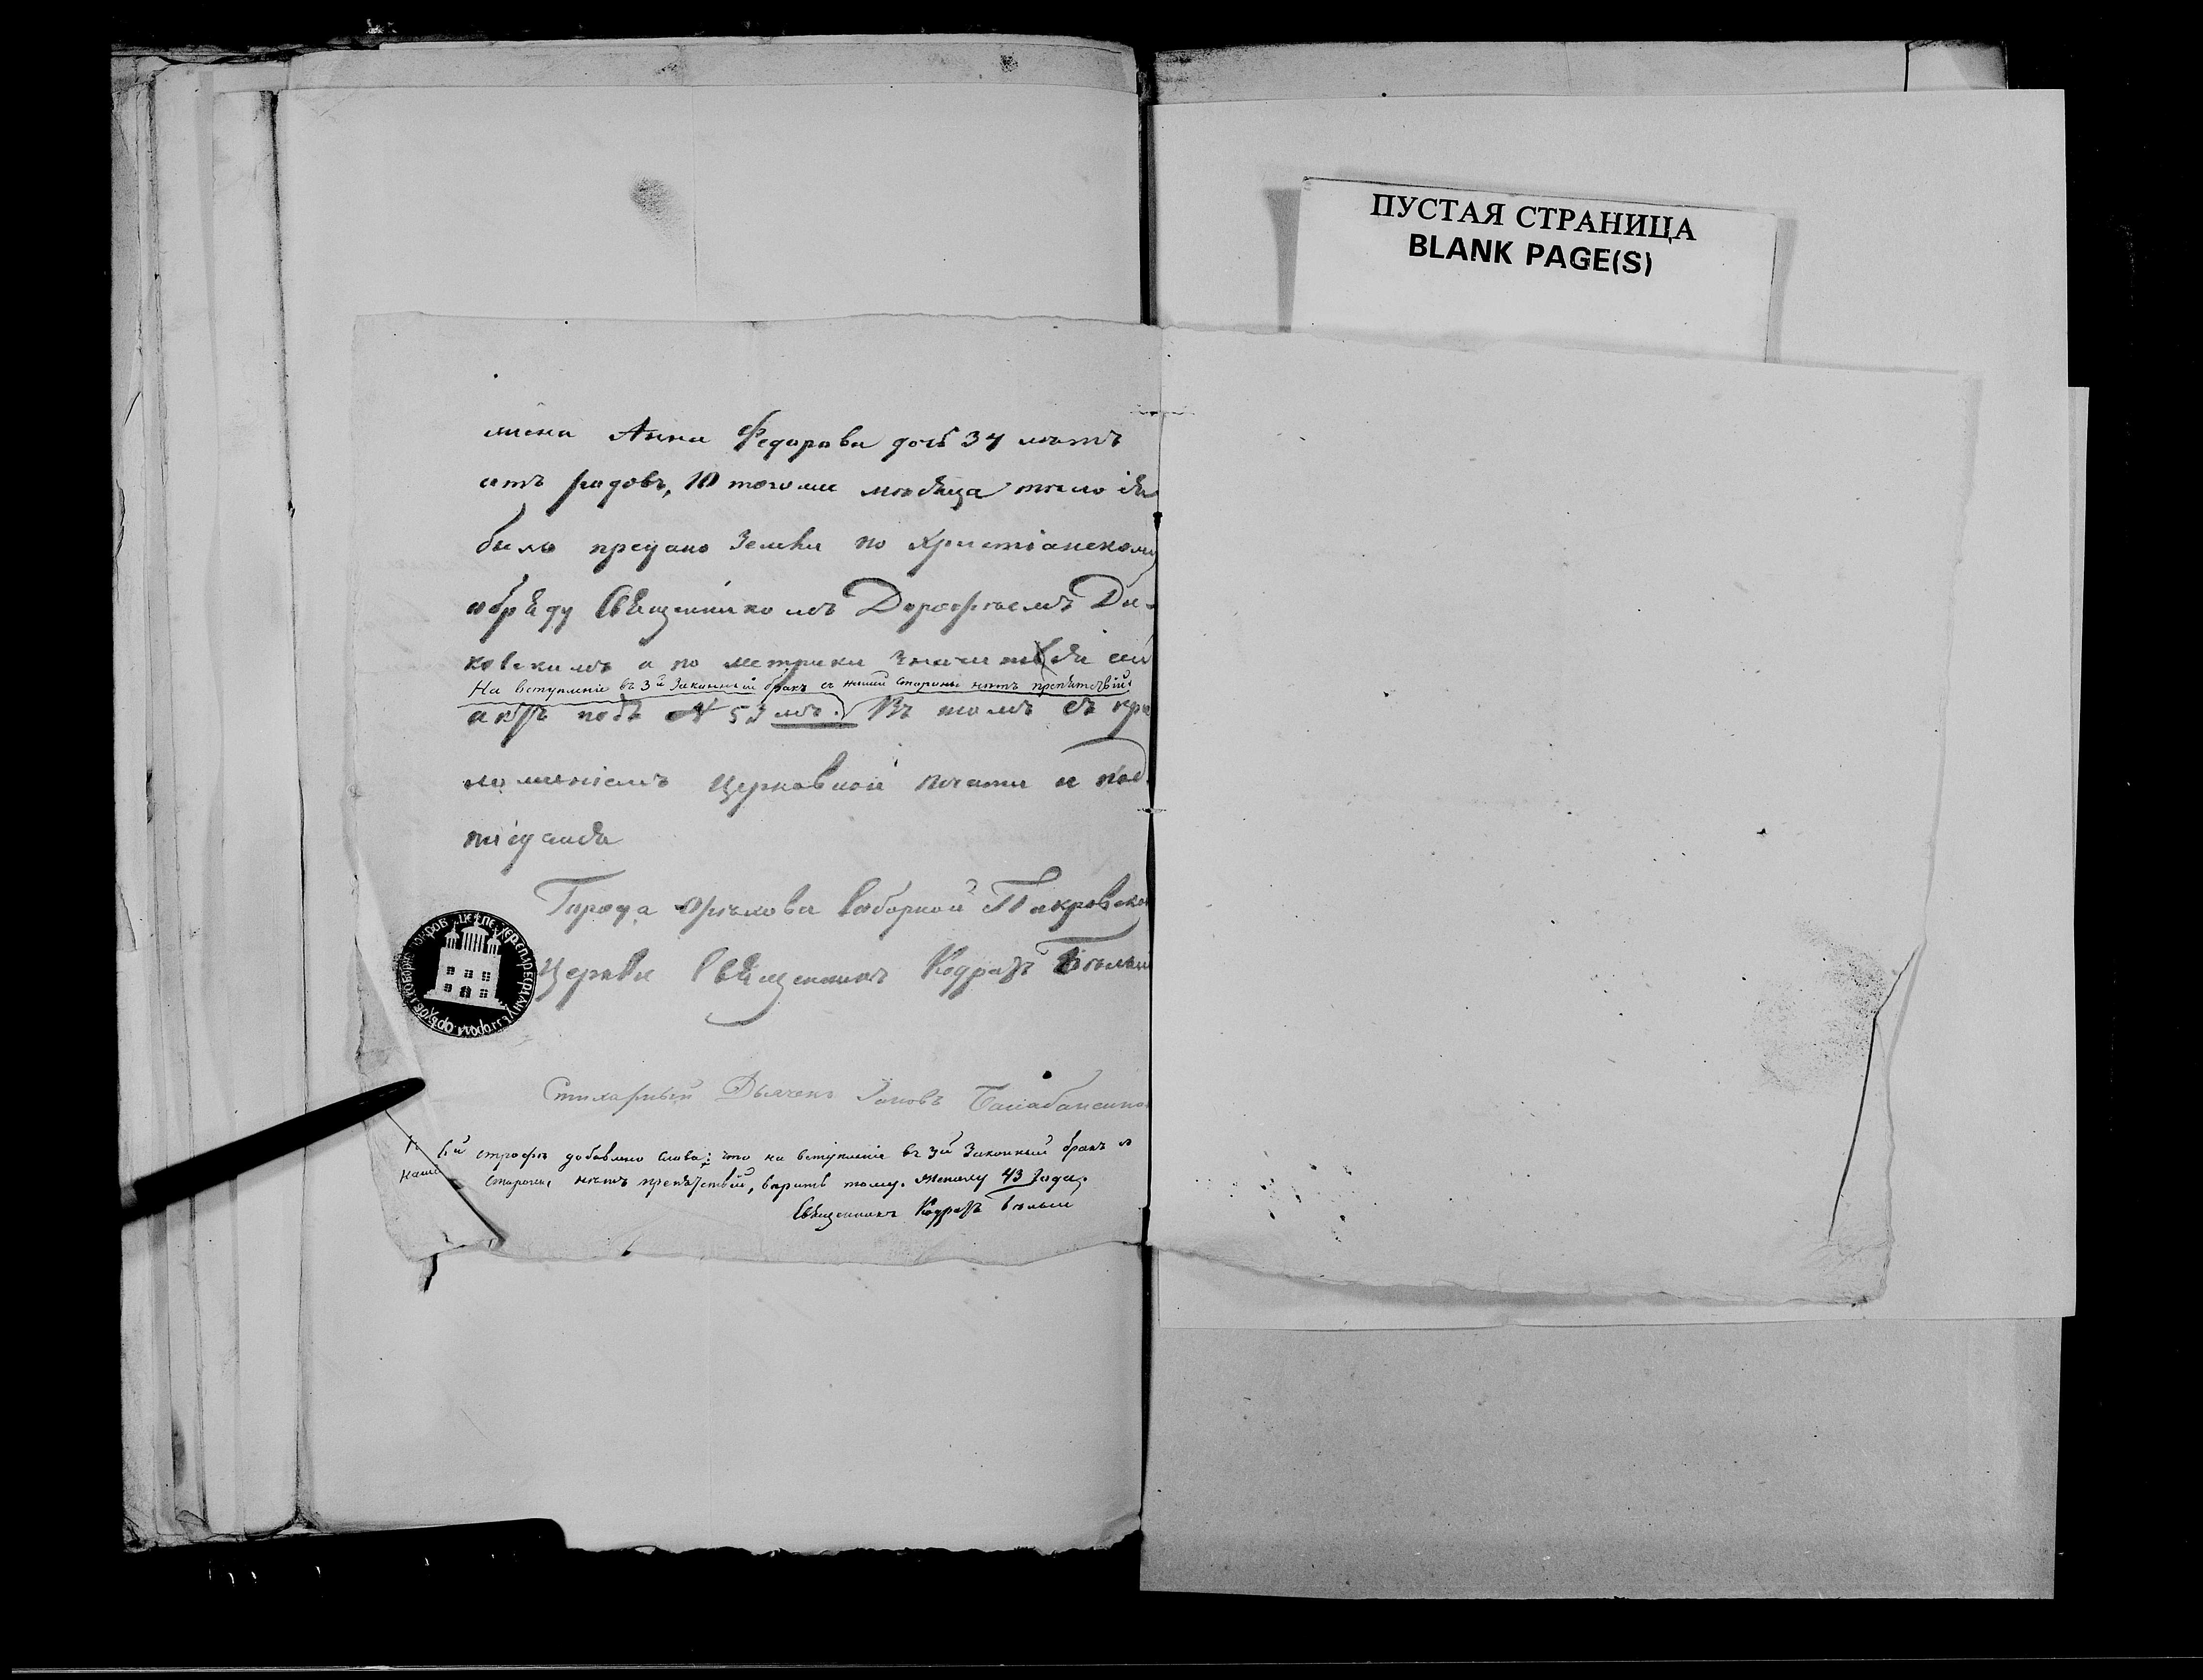 жена Анна Федорова дочь 34 лѣтъ
отъ родовъ, 10 того же мѣсяца тѣло ея
было предано Земли по Христіанскому
обряду Священникомъ Дорофѣемъ Ди-
ковскимъ а по метрики значится сей
На вступленіе въ 3й Законный бракъ съ нашей стороны нѣтъ препятствій.
актъ подъ № 53 мъ. Въ томъ съ при
ложеніемъ Церковной печати и под
писуемся
Города Орѣхова Соборной Покровской
Церкви Священникъ Кодратъ Бѣлый
Стихарный Дьячекъ
строфѣ добавлено слова: что на вступленіе въ 3й Законный бракъ съ
нашей стороны нѣтъ препятствій, вѣрить тому. 43 года.
Священникъ Кодратъ Бѣлый
ПУСТАЯ СТРАНИЦА
BLANK PAGE(S)